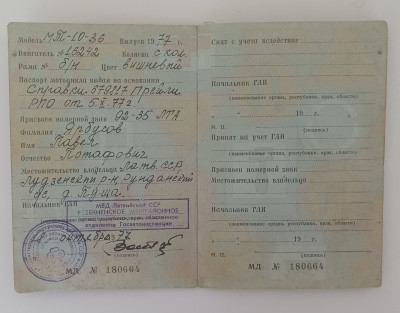 Модель МТ-10-36 Выпуск 1977 г.
Двигатель № 15242 Коляска с кол.
Рама № б/н Цвет вишневый
Паспорт мотоцикла выдан на основании
Справки-579217 Прейли
РПО от 5.X.77г.
Присвоен номерной знак 92-35 ЛТА
Фамилия
Имя Павел
Отчество Потафович
Местожительство владельца Латв. ССР
Лудзенский р-н,
с/с, д.
Начальник ГАИ
МВД Латвийской ССР
РЕЗЕКНЕНСКОЕ МЕЖРАЙОННОЕ
отделение Госавтоинспекции
октября 77
(подпись)
МД № 180664
Снят с учета вследствие
Начальник ГАИ
(наименование органа, республики, края, области)
19 г.
М. П. (подпись)
Принят на учет ГАИ
(наименование органа, республики, края, области)
Присвоен номерной знак
Местожительство владельца
Начальник ГАИ
(наименование органа, республики, края, области)
19 г.
М. П. (подпись)
МД № 180664